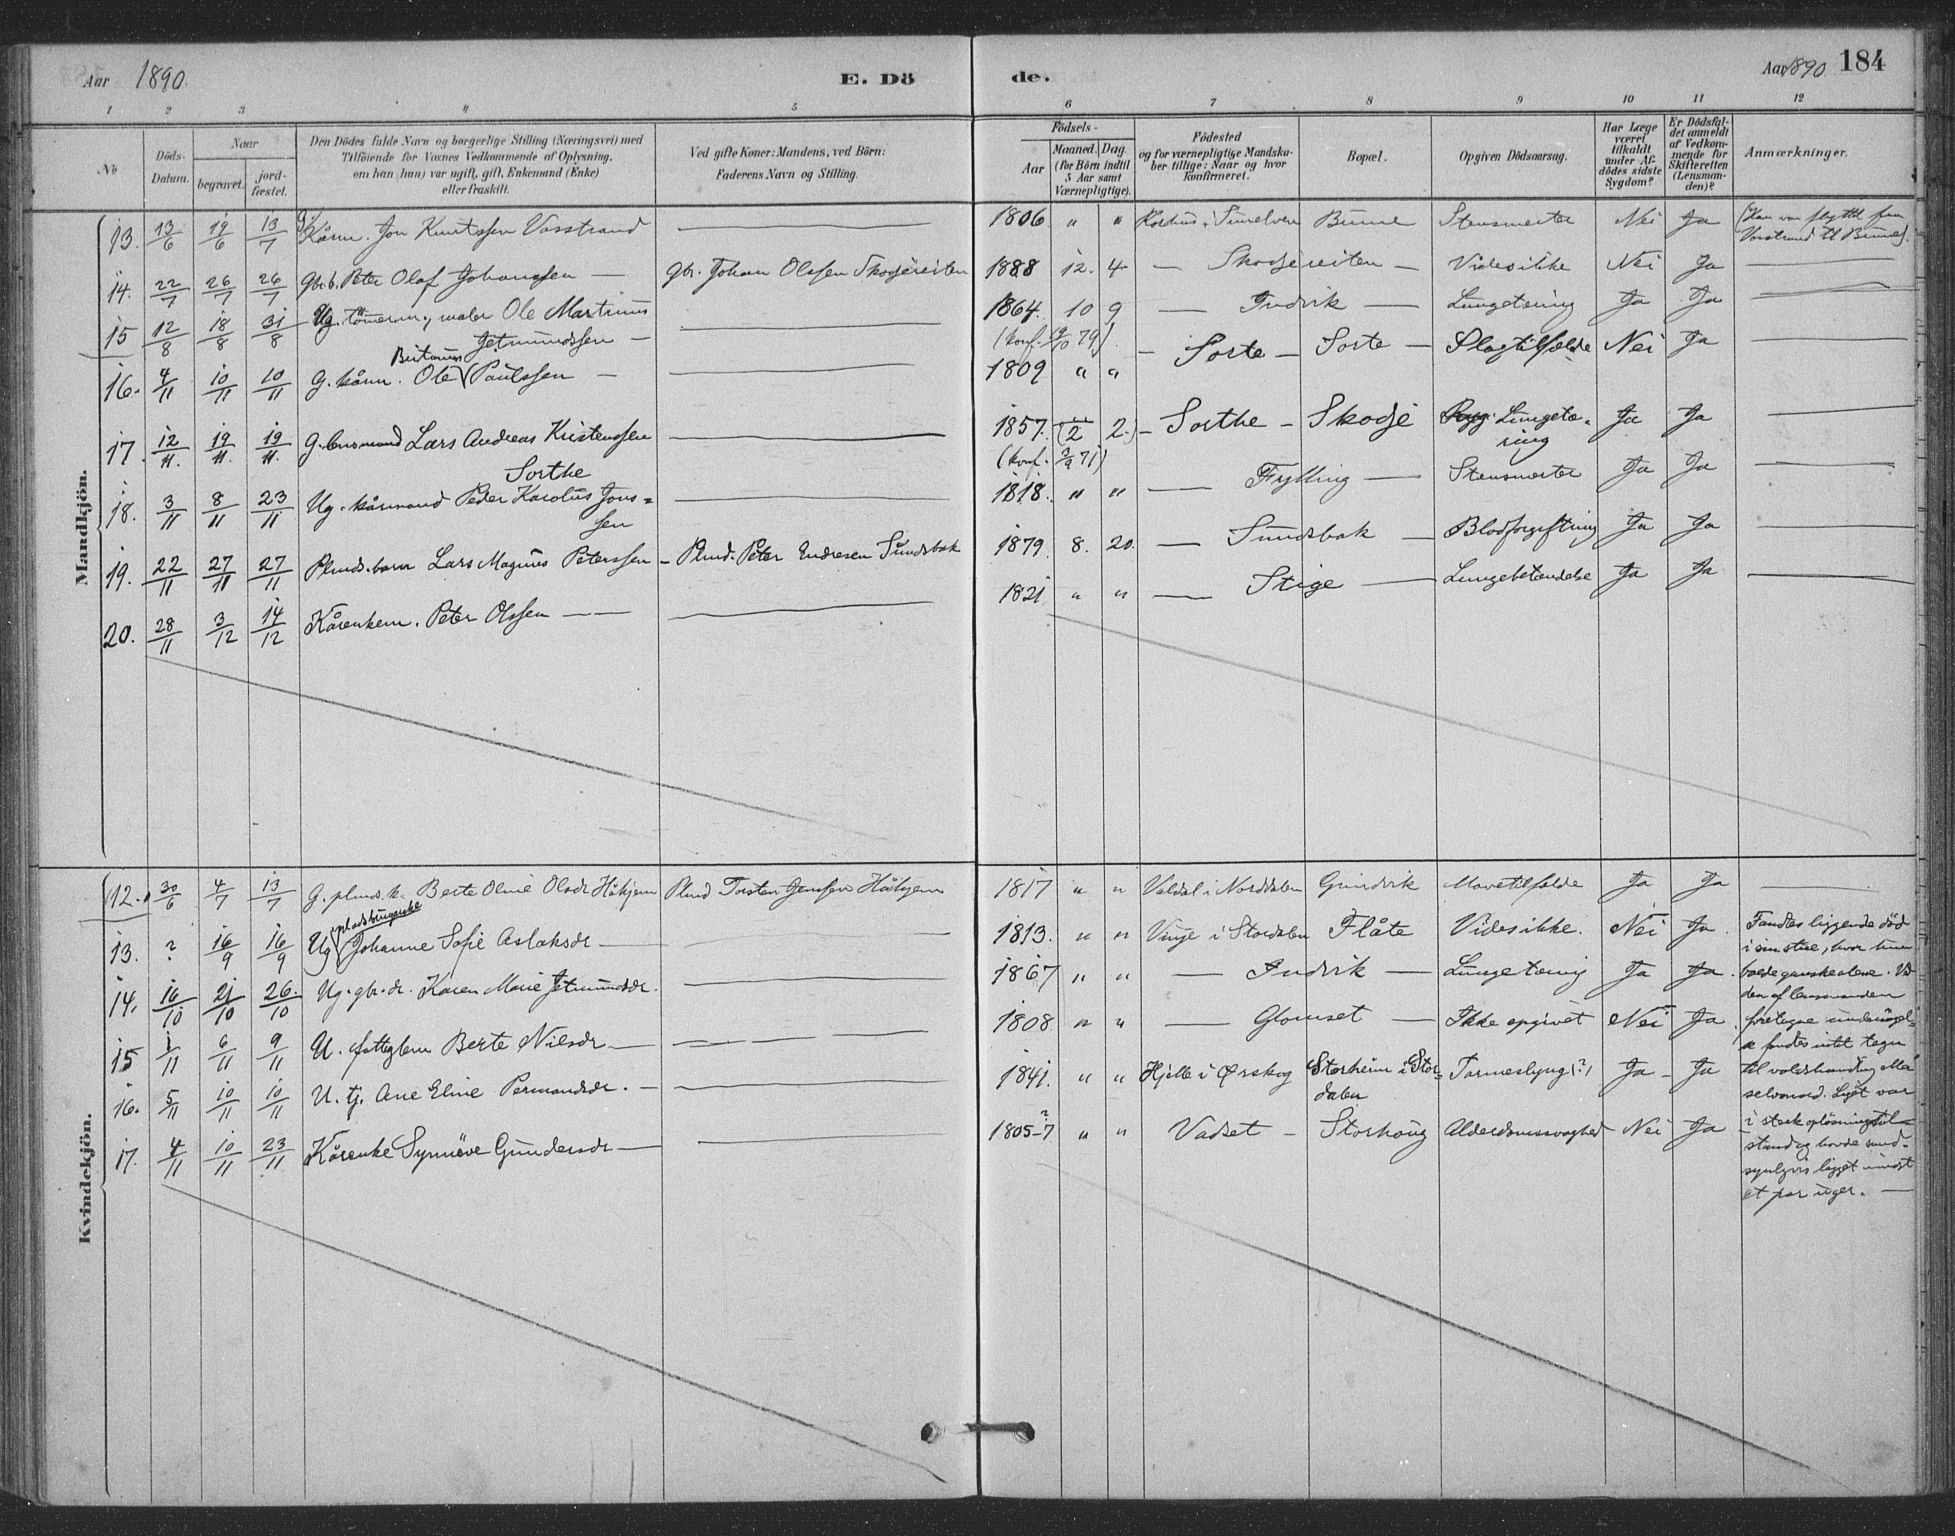 Aar 1890. E. Dö de. Aar 1890 184
1 2 3 4 5 6 7 8 9 10 11 12
No
Döds-Datum.
Naar
begravet.
jord-fæstet.
Den Dödes fulde Navn og borgerlige Stilling (Næringsvei) med
Tilföiende for Voxnes Vedkommende af Oplysning,
om han (hun) var ugift, gift, Enkemand (Enke)
eller fraskilt.
Ved gifte Koner: Mandens, ved Börn:
Faderens Navn og Stilling.
Födsels-
Aar
Maaned. Dag.
(for Börn indtil
5 Aar samt
Værnepligtige).
Födested
og for værnepligtige Mandska-
ber tillige: Naar og hvor
konfirmeret.
Bopæl.
Opgiven Dödsaarsag.
Har Læge
været
tilkaldt
under Af-
dödes sidste
Sygdom?
Er Dödsfal-
det anmeldt
af Vedkom-
mende for
Skifteretten
(Lensman-
den)?
Anmærkninger.
Mandkjön.
13. 13/6 19/6 13/7 Kårm. Jon Knutssen Vasstrand — 1806 " " i Sunelven Stensmerter Nei Ja (Han var flyttet fra
Vasstrand til
14. 22/7 26/7 26/7 Gbr.b. Peter Olaf Johanssen — Gbr. Johan Olssen Skodjereiten 1888 12. 4 — Skodjereiten — Vides ikke Nei Ja —
15 12/8 18/8 31/8 Ug. maler Ole Martinus
Jetmundssen — 1864. 10 9 — Indvik — Lungetæring Ja Ja —
(konf. 79)
16. 4/11 10/11 10/11 G. kårm. Ole Paulssen — 1809 " " — Sorte — Sorte — Slagtilfælde Nei Ja —
17. 12/11. 19/11. 19/11. G. Lars Andreas Kristenssen
Sorthe — 1857. (2 2.) — Sorthe — Skodje Lungetæ-
ring Ja Ja —
(konf. 71)
18. 3/11 8/11 23/11 Ug. kårmand Peder Karolus Jons=
sen — 1818. " " — Frylling — Stensmerter Ja Ja —
19. 22/11 27/11 27/11 Plmds.barn Lars Magnus Peterssen — Plmd. Peter Endresen Sundsbak 1879. 8. 20. — Sundsbak — Blodforgiftning Ja Ja —
20. 28/11 3/12 14/12 Kårenkem. Peter Olssen — — 1821 " " — Stige — Lungebetændelse Ja Ja —
Kvindekjön.
12. 30/6 4/7 13/7 G. plmds.k. Berte Oline Olsdr Håhjem Plmd Torsten Jenssen Håhjem 1817 " " Valdal i Norddalen Grindvik Mavetilfælde Ja Ja —
13. ? 16/9 16/9 Ug Johanne Sofie Aslaksdr — 1813. " " Vinje i Stordalen Flåte Vides ikke. Nei Ja. Fandtes liggende död
14. 16/10 21/10 26./10 Ug. gbr.dr. Karen Marie Jetmundsdr. — 1867 " " — Indvik — Lungetæring Ja Ja.
15 1/11 6/11 9/11 U. fattiglem Berte Nilsdr — 1808 " " — Glomset — Ikke opgivet Nei Ja
16. 5/11 10/11 10/11 U. tj. Ane Eline Permandsdr. — 1841. " " Hjelle i Ørskog Storheim i Stor=
dalen Tarmeslyng (?) Ja — Ja
17. 4/11 10/11 23/11 Kårenke Synnöve Gundersdr — 1805-7? " " Vadset — Storhaug Alderdomssvaghed Nei Ja
i sin stue, hvor hun
boede ganske alene. Ved
den af lensmanden
foretagne undersögel-
se fandtes intet tegn
til voldshandling eller
selvmord. Liget var
i sterk oplösningstil-
stand og havde sand-
synligvis ligget mindst
et par uger. —